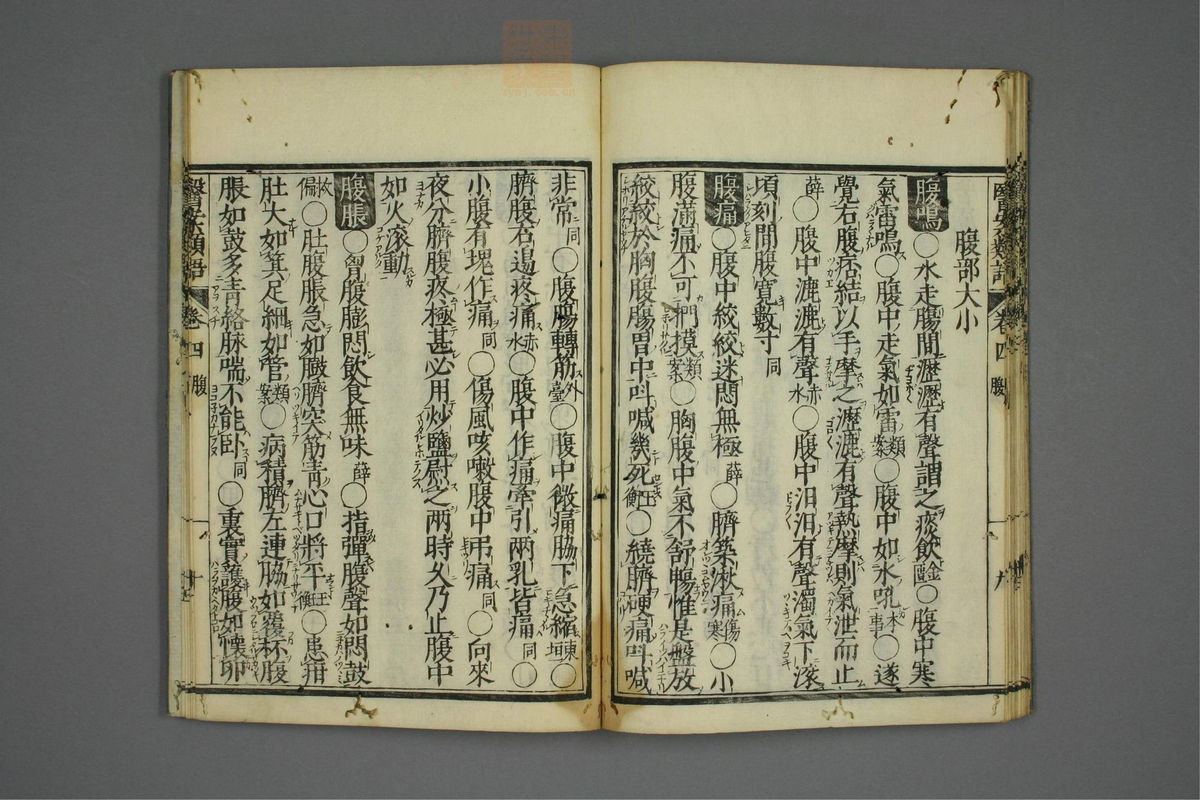 腹部大小
腹鳴○水走腸間瀝瀝有聲謂之痰飲 ○腹中寒
氣雷鳴○腹中走氣如雷 類案 ○腹中如水吼 本事 ○遂
覺右腹痞結以手摩之瀝漉有聲熱摩則氣泄而止
薛○腹中漉漉有聲 赤水 ○腹中汩汩有聲濁氣下滚
頃刻間腹寛數寸 同
腹痛○腹中絞絞迷悶無極 薛○臍築湫痛 傷寒 ○小
腹滿痛不可捫摸 類案 ○胸腹中氣不舒暢惟是盤放
絞絞於胸腹腸胃中呌喊幾死 王衡 ○繞臍硬痛呌喊
非常 同○腹腸轉筋 外臺 ○腹中微痛脇下急縮 東垣 ○
臍腹右邉疼痛 赤水 ○腹中作痛牽引兩乳皆痛 同○
小腹有塊作痛 同○傷風咳嗽腹中吊痛 同○向來
夜分臍腹疼極甚必用炒鹽熨之两時久乃止腹中
如火滚動
腹脹○胷腹膨悶飲食無味 薛○指彈腹聲如悶鼓
○肚腹脹急如臌臍突筋靑心口將平 王衡 ○患疳
肚大如箕足細如管 類案 ○病積臍左連脇如覆杯腹
脹如鼓多靑絡脉喘不能卧 同○裏實護腹如懷卵
卷四 腹
卷四 腹 十